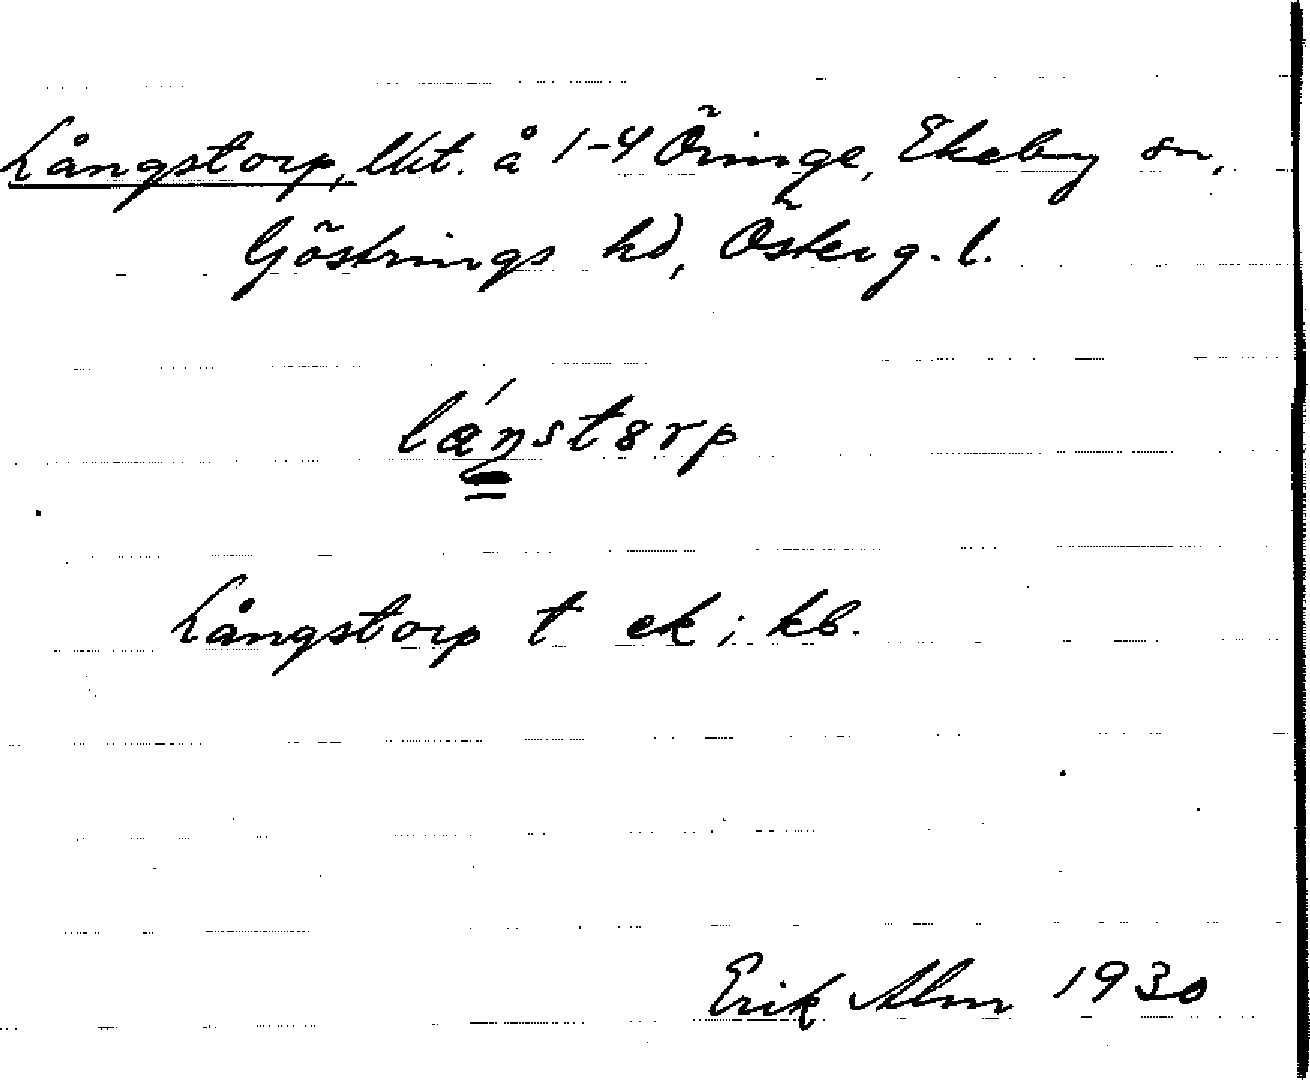 Långstorp, lht. å 1-4 Öringe, Ekeby sn,
Göstrings hd, Österg. l.
Långstorp t ek; kb.
Erik Alm 1930